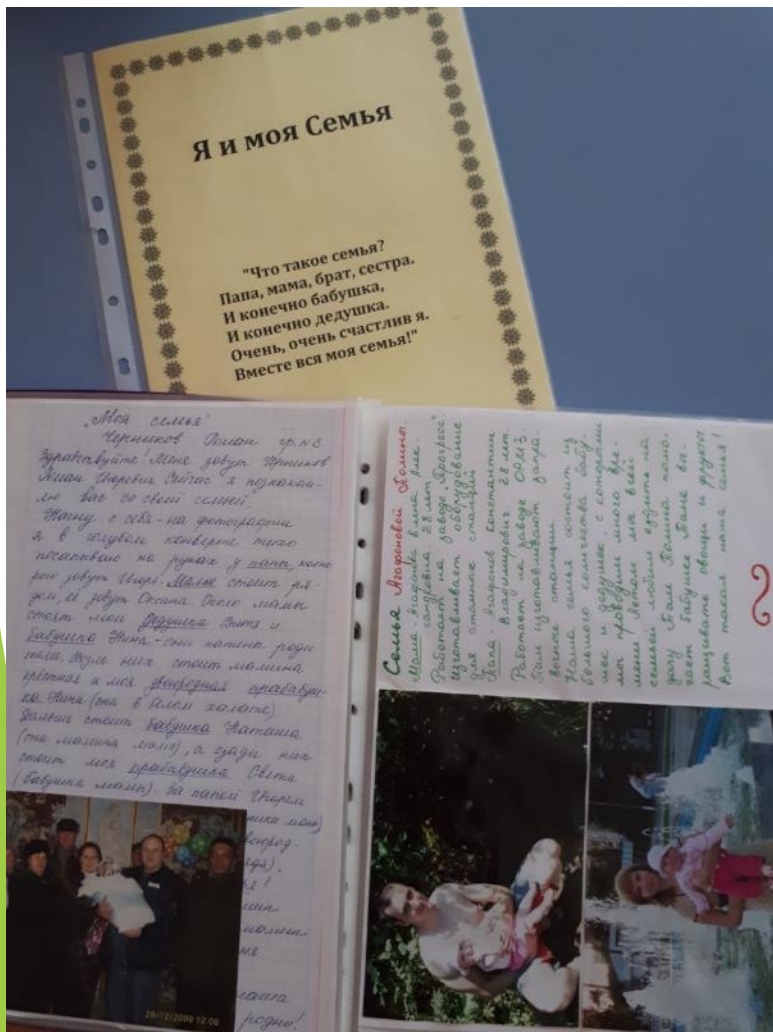 Я и моя Семья
"Что такое семья?
Папа, мама, брат, сестра.
И конечно бабушка,
И конечно дедушка.
Очень, очень счастлив я.
Вместе вся моя семья!"
„Моя семья"
Черников гр. №3
Здравствуйте! Меня зовут Черников
Игоревич Сейчас я познаком-
лю вас со своей семьей.
Начну с себя - на фотографии
я в голубом конверте тихо
посапываю на руках у папы, кото
рого зовут Игорь. Мама стоит ря-
дом, её зовут Оксана. Около мамы
стоят мои дедушка Витя и
бабушка Нина - они папины роди
тели. них стоит мамина
крёстная и моя двоюродная прабабуш-
ка Нина (она в белом халате)
дальше стоит бабушка Наташа
(она мамина мама), а сзади них
стоит моя прабабушка Света
(бабушка мамы). За папой Игорем
родни!
28/12/2009 12:00
Семья Агафоновой Полины.
Мама - Агафонова Елена Алек-
сандровна 28 лет
Работает на заводе „Прогресс"
Изготавливает оборудование
для станций
Папа - Агафонов Константин
Владимирович 28 лет.
Работает на заводе
Там изготавливают запра-
вочные станции.
Наша семья состоит из
большого количества бабу-
шек и дедушек, с которыми
мы проводим много вре-
мени. Летом мы всей
семьей любим ездить на
дачу. Там Полина помо-
гает бабушке Тане вы-
ращивать овощи и фрукты.
Вот такая наша семья!